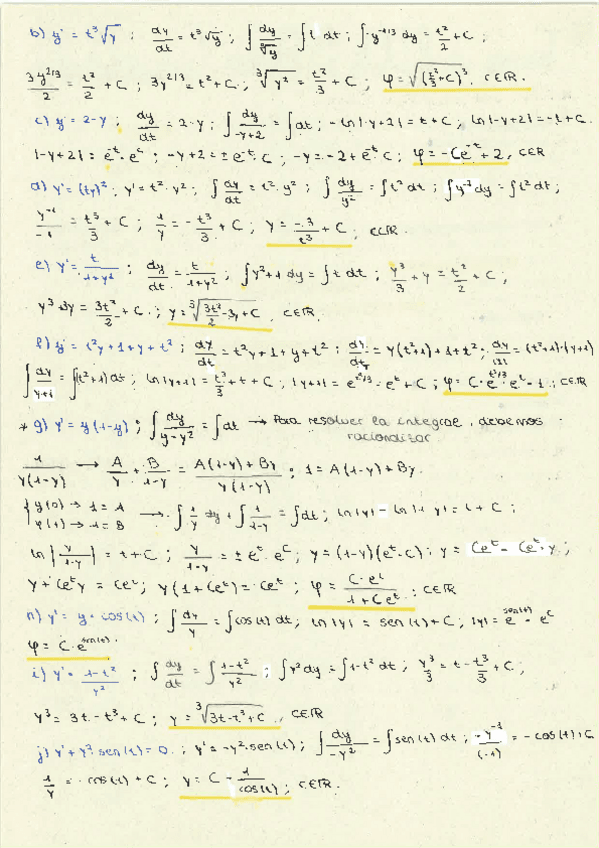 b) y' = t³√y ; dy/dt = t³√y ; ∫ dy/∛y = ∫ t dt ; ∫ y^-1/3 dy = t²/2 + C ;
3y^2/3/2 = t²/2 + C ; 3y^2/3 = t² + C ; ∛y² = t²/3 + C ; φ = √(t²/3 + C)³, C∈ℝ.
c) y' = 2-y ; dy/dt = 2-y ; ∫ dy/-y+2 = ∫ dt ; -ln|-y+2| = t + C ; ln|-y+2| = -t + C.
|-y+2| = e^-t · e^C ; -y+2 = ± e^-t · C ; -y = -2 + e^-t C ; φ = -Ce^-t + 2, C∈ℝ
d) y' = (ty)² ; y' = t² · y² ; ∫ dy/dt = t² · y² ; ∫ dy/y² = ∫ t² dt ; ∫ y^-2 dy = ∫ t² dt ;
y^-1/-1 = t³/3 + C ; 1/y = -t³/3 + C ; y = -3/t³ + C ; C∈ℝ.
e) y' = t/1+y² ; dy/dt = t/1+y² ; ∫ y²+1 dy = ∫ t dt ; y³/3 + y = t²/2 + C ;
y³ + 3y = 3t²/2 + C ; y = ∛(3t²/2 - 3y + C) C∈ℝ.
f) y' = t²y + 1 + y + t² ; dy/dt = t²y + 1 + y + t² ; dy/dt = y(t²+1) + 1 + t² ; dy/dt = (t²+1)·(y+1)
∫ dy/y+1 = ∫ (t²+1) dt ; ln|y+1| = t³/3 + t + C ; |y+1| = e^t³/3 · e^t + C ; φ = C · e^t³/3 · e^t - 1 ; C∈ℝ
* g) y' = y(1-y) ; ∫ dy/y-y² = ∫ dt → Para resolver la integral, debemos
racionalizar
1/y(1-y) → A/y + B/1-y = A(1-y) + By/y(1-y) ; 1 = A(1-y) + By.
{ y(0) → 1 = A y(1) → 1 = B → ∫ 1/y dy + ∫ 1/1-y = ∫ dt ; ln|y| - ln|1-y| = t + C ;
ln|y/1-y| = t + C ; y/1-y = ± e^t · e^C ; y = (1-y)(e^t · C) ; y = Ce^t - Ce^t · y ;
y + Ce^t y = Ce^t ; y(1 + Ce^t) = Ce^t ; φ = C · e^t/1 + Ce^t ; C∈ℝ
h) y' = y · cos(t) ; ∫ dy/y = ∫ cos(t) dt ; ln|y| = sen(t) + C ; |y| = e^sen(t) · e^C
φ = C · e^sen(t).
i) y' = 1-t²/y² ; ∫ dy/dt = ∫ 1-t²/y² ; ∫ y² dy = ∫ 1-t² dt ; y³/3 = t - t³/3 + C ;
y³ = 3t - t³ + C ; y = ∛(3t - t³ + C), C∈ℝ
j) y' + y² sen(t) = 0 ; y' = -y² · sen(t) ; ∫ dy/-y² = ∫ sen(t) dt ; -y^-1/(-1) = -cos(t) + C
1/y = -cos(t) + C ; y = C - 1/cos(t) ; C∈ℝ.